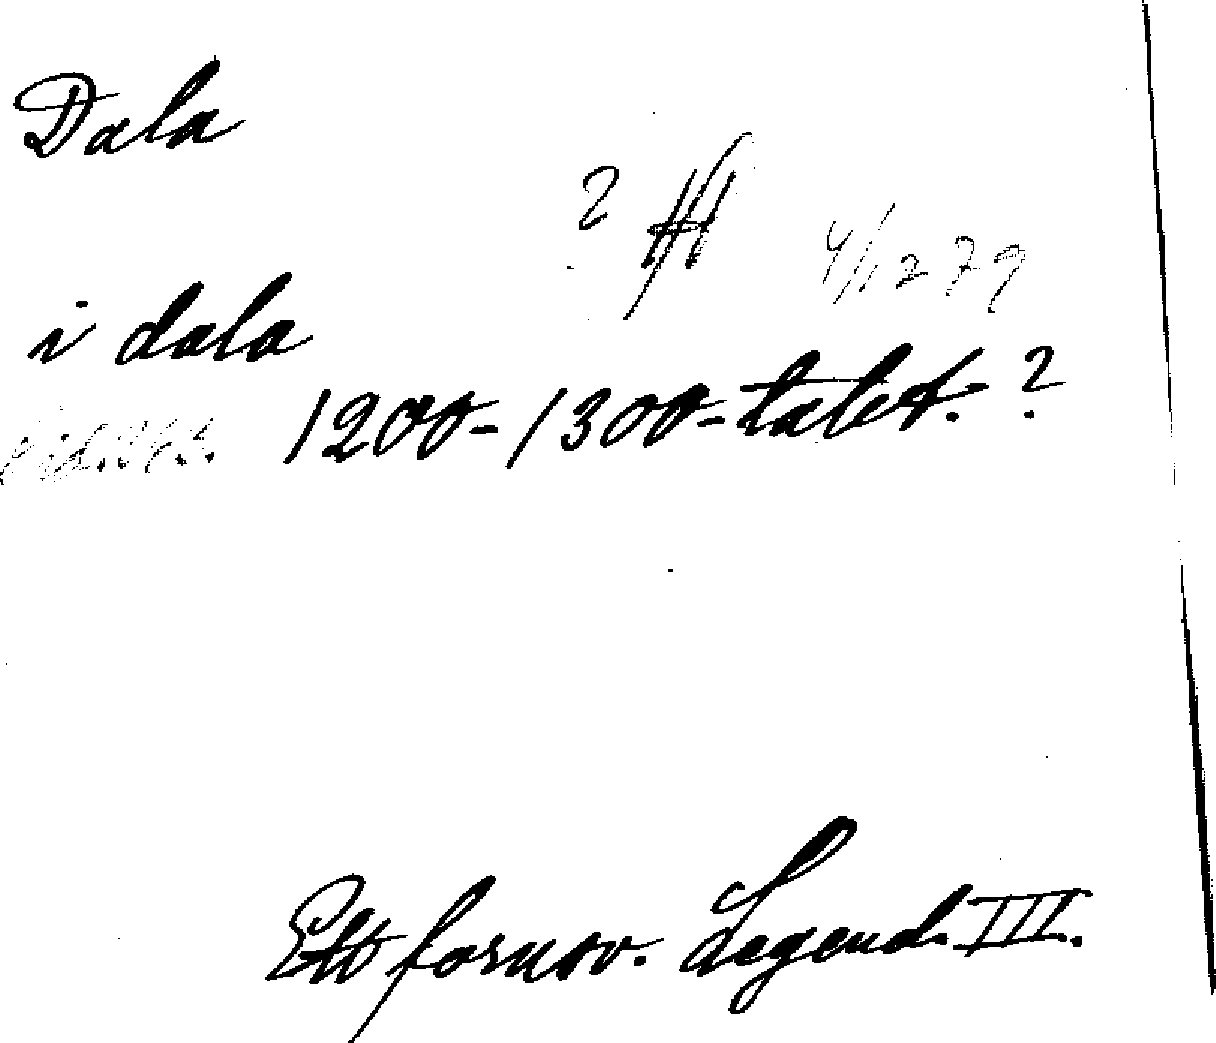 Dala
?
4/12 79
i dala
1200-1300-talet. ?
Ett fornsv. Legend. III.